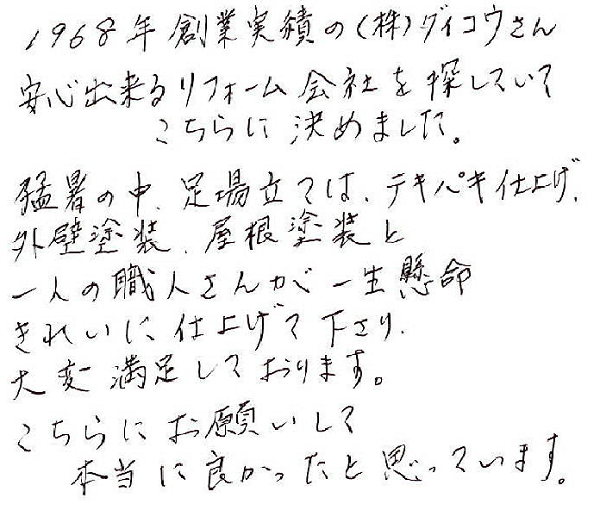 1968年創業実績の(株)ダイコウさん
安心出来るリフォーム会社を探していて
こちらに決めました。
猛暑の中、足場立ては、テキパキ仕上げ、
外壁塗装、屋根塗装と
一人の職人さんが一生懸命
きれいに仕上げて下さり、
大変満足しております。
こちらにお願いして
本当に良かったと思っています。